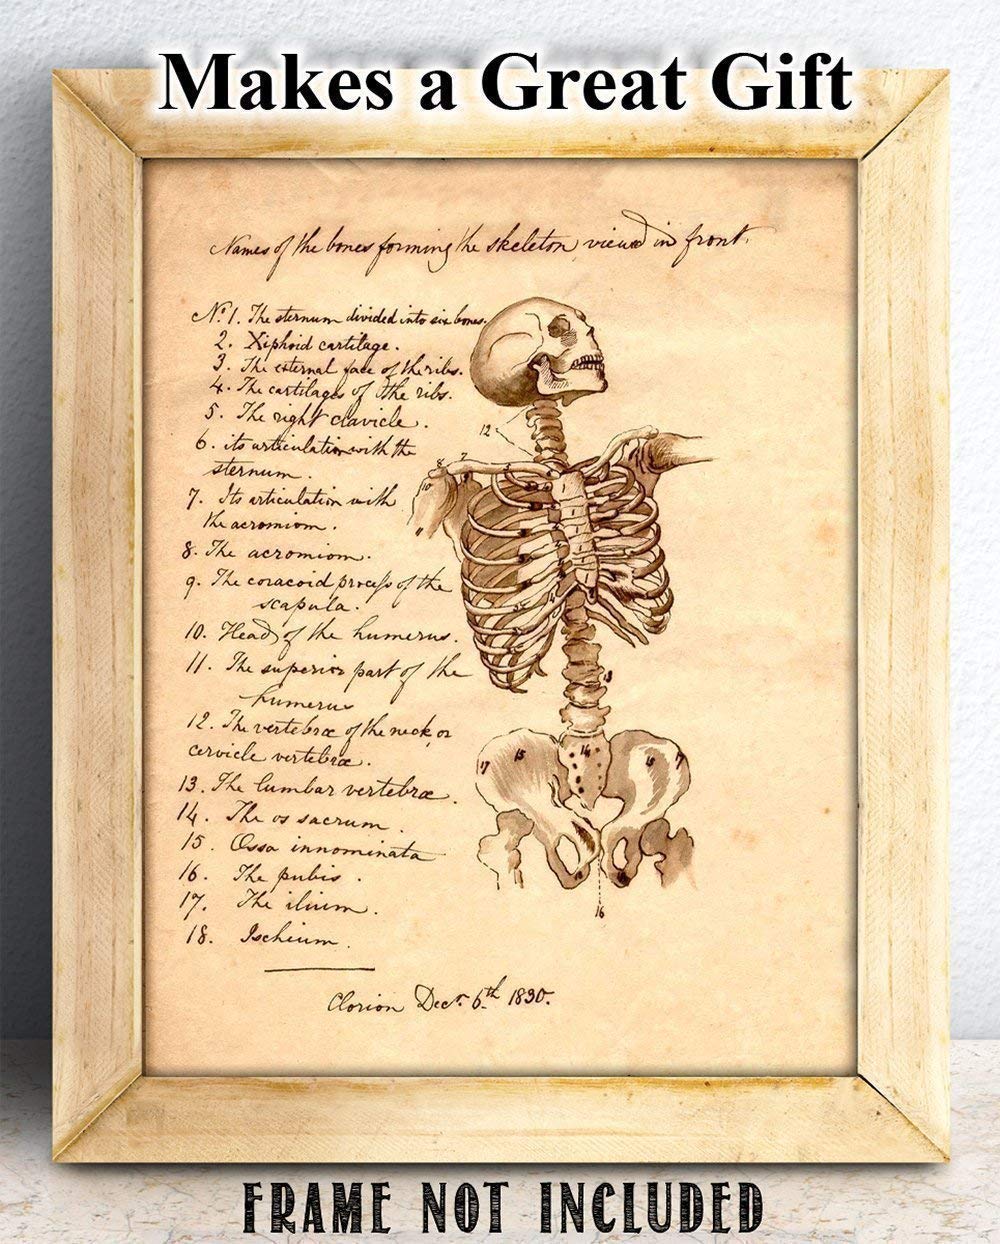 Makes a Great Gift
Names of the bones forming the skeleton, viewed in front.
No. 1. The sternum divided into six bones.
2. Xiphoid cartilage.
3. The external face of the ribs.
4. The cartilages of the ribs.
5. The right clavicle.
6. its articulation with the
sternum.
7. Its articulation with
the acromiom.
8. The acromiom.
9. The coracoid process of the
scapula.
10. Head of the humerus.
11. The superior part of the
humerus
12. The vertebræ of the neck, or
cervicle vertebræ.
13. The lumbar vertebræ.
14. The os sacrum.
15. Ossa innominata
16. The pubis.
17. The ilium.
18. Ischium.
Clorion Decr. 6th 1830.
12
8 7
10
11
13
17 15 14 15 17
16
FRAME NOT INCLUDED